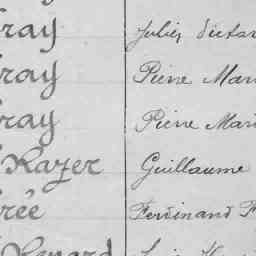 ray Julien Victor
ray Pierre Mari
ray Pierre Mari
Razer Guillaume
rée Ferdinand F
Renard